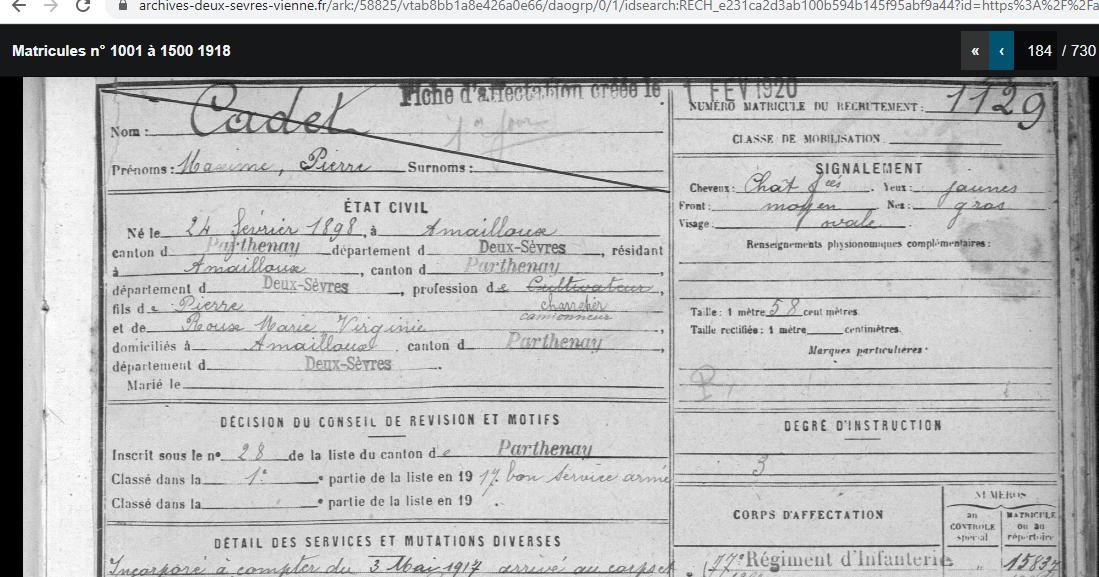 archives-deux-sevres-vienne.fr/ark:/58825/vtab8bb1a8e426a0e66/daogrp/0/1/idsearch:RECH_e231ca2d3ab100b594b145f95abf9a44?id=https%3A%2F%2Fa
Matricules n° 1001 à 1500 1918
« ‹ 184 / 730
Fiche d'affectation créée le 1 FEV 1920
NUMÉRO MATRICULE DU RECRUTEMENT: 1129
Nom: Cadet
CLASSE DE MOBILISATION
Prénoms: Maxime, Pierre Surnoms:
SIGNALEMENT
Cheveux: Chat Yeux: jaunes
Front: moyen Nez: gros
Visage: ovale
Renseignements physionomiques complémentaires:
Taille: 1 mètre 58 centimètres
Taille rectifiée: 1 mètre centimètres.
Marques particulières:
ÉTAT CIVIL
Né le 24 février 1898, à Amailloux
canton d Parthenay département d Deux-Sèvres, résidant
à Amailloux, canton d Parthenay,
département d Deux-Sèvres, profession de Cultivateur,
charretier
camionneur
fils de Pierre
et de Roux Marie Virginie,
domiciliés à Amailloux canton d Parthenay,
département d Deux-Sèvres.
Marié le
DÉCISION DU CONSEIL DE REVISION ET MOTIFS
Inscrit sous le n° 28 de la liste du canton de Parthenay
Classé dans la 1e partie de la liste en 1917. bon service armé
Classé dans la e partie de la liste en 19 .
DEGRÉ D'INSTRUCTION
3
DÉTAIL DES SERVICES ET MUTATIONS DIVERSES
Incorporé à compter du 3 Mai 1917 arrivé au corps et
CORPS D'AFFECTATION
NUMÉROS
au CONTROLE spécial
MATRICULE ou au répertoire
77e Régiment d'Infanterie 15837